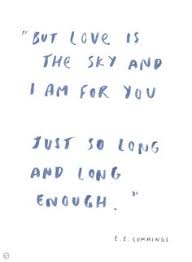 "BUT LOVE IS
THE SKY AND
I AM FOR YOU
JUST SO LONG
AND LONG
ENOUGH."
E.E. CUMMINGS